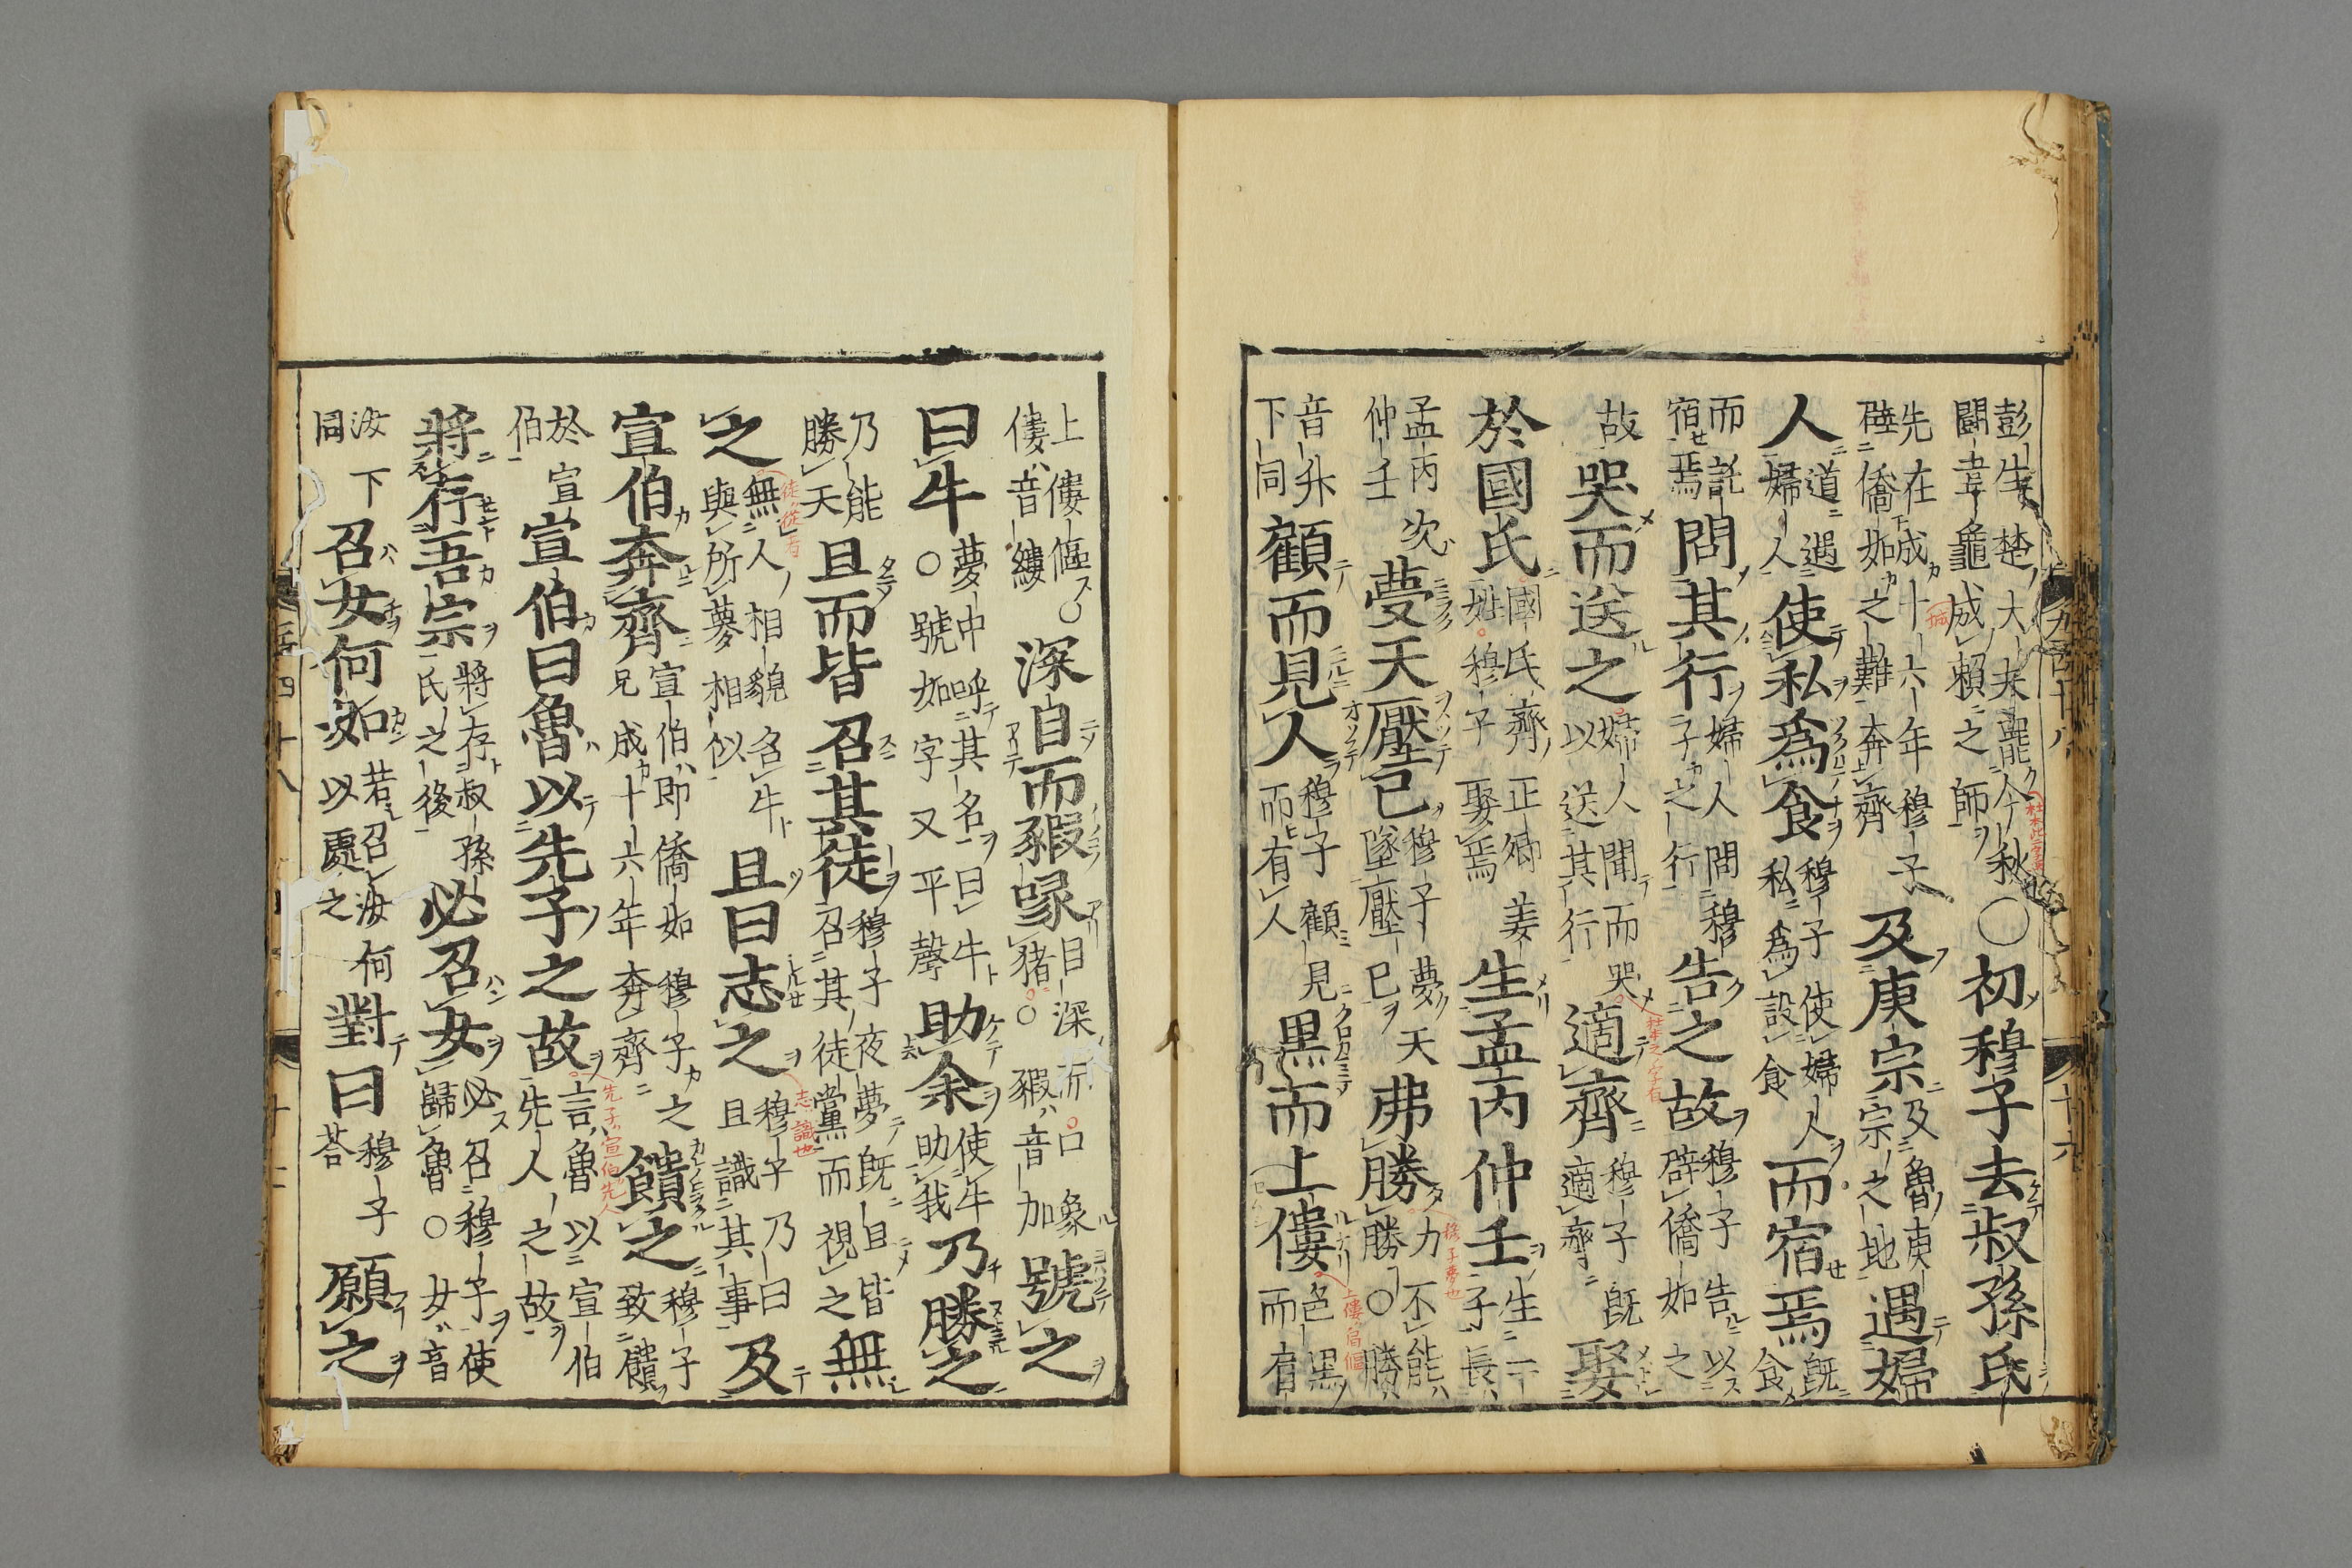 彭生楚大夫罷令秋○初穆子去叔孫氏
鬭韋龜成賴之師
先在成十六年穆子及庚宗及魯庚遇婦
辟僑如之難奔齊宗之地
人道遇婦人使私爲食穆子使婦人而宿焉既食
私爲設食
而託宿焉問其行婦人問穆告之故穆子告以
子之行辟僑如之
故哭而送之婦人聞而哭適齊穆子既娶
以送其行適齊
於國氏國氏齊正卿姜生孟丙仲壬生二子長
姓穆子娶焉
孟丙次仲壬夢天壓已穆子夢天弗勝力不能勝○勝
墜壓已
音升下同顧而見人穆子顧見黑而上僂色黑而肩
而有人
上僂傴○深自而豭喙目深而口象號之
僂音縷猪○豭音加
曰牛夢中呼其名曰牛助余使牛乃勝之
○號如字又平聲助我
乃能勝天且而皆召其徒穆子夜夢既旦皆無
召其徒黨而視之
之無人相貌名牛且曰志之穆子乃曰及
與所夢相似且識其事
宣伯奔齊宣伯即僑如穆子之饋之穆子
兄成十六年奔齊致饋
於宣伯宣伯曰魯以先子之故言魯以宣伯
先人之故
將存吾宗將存叔孫必召女必召穆子使
氏之後歸魯○女音
汝下同召女何如若召汝何對曰穆子願之
以處之荅